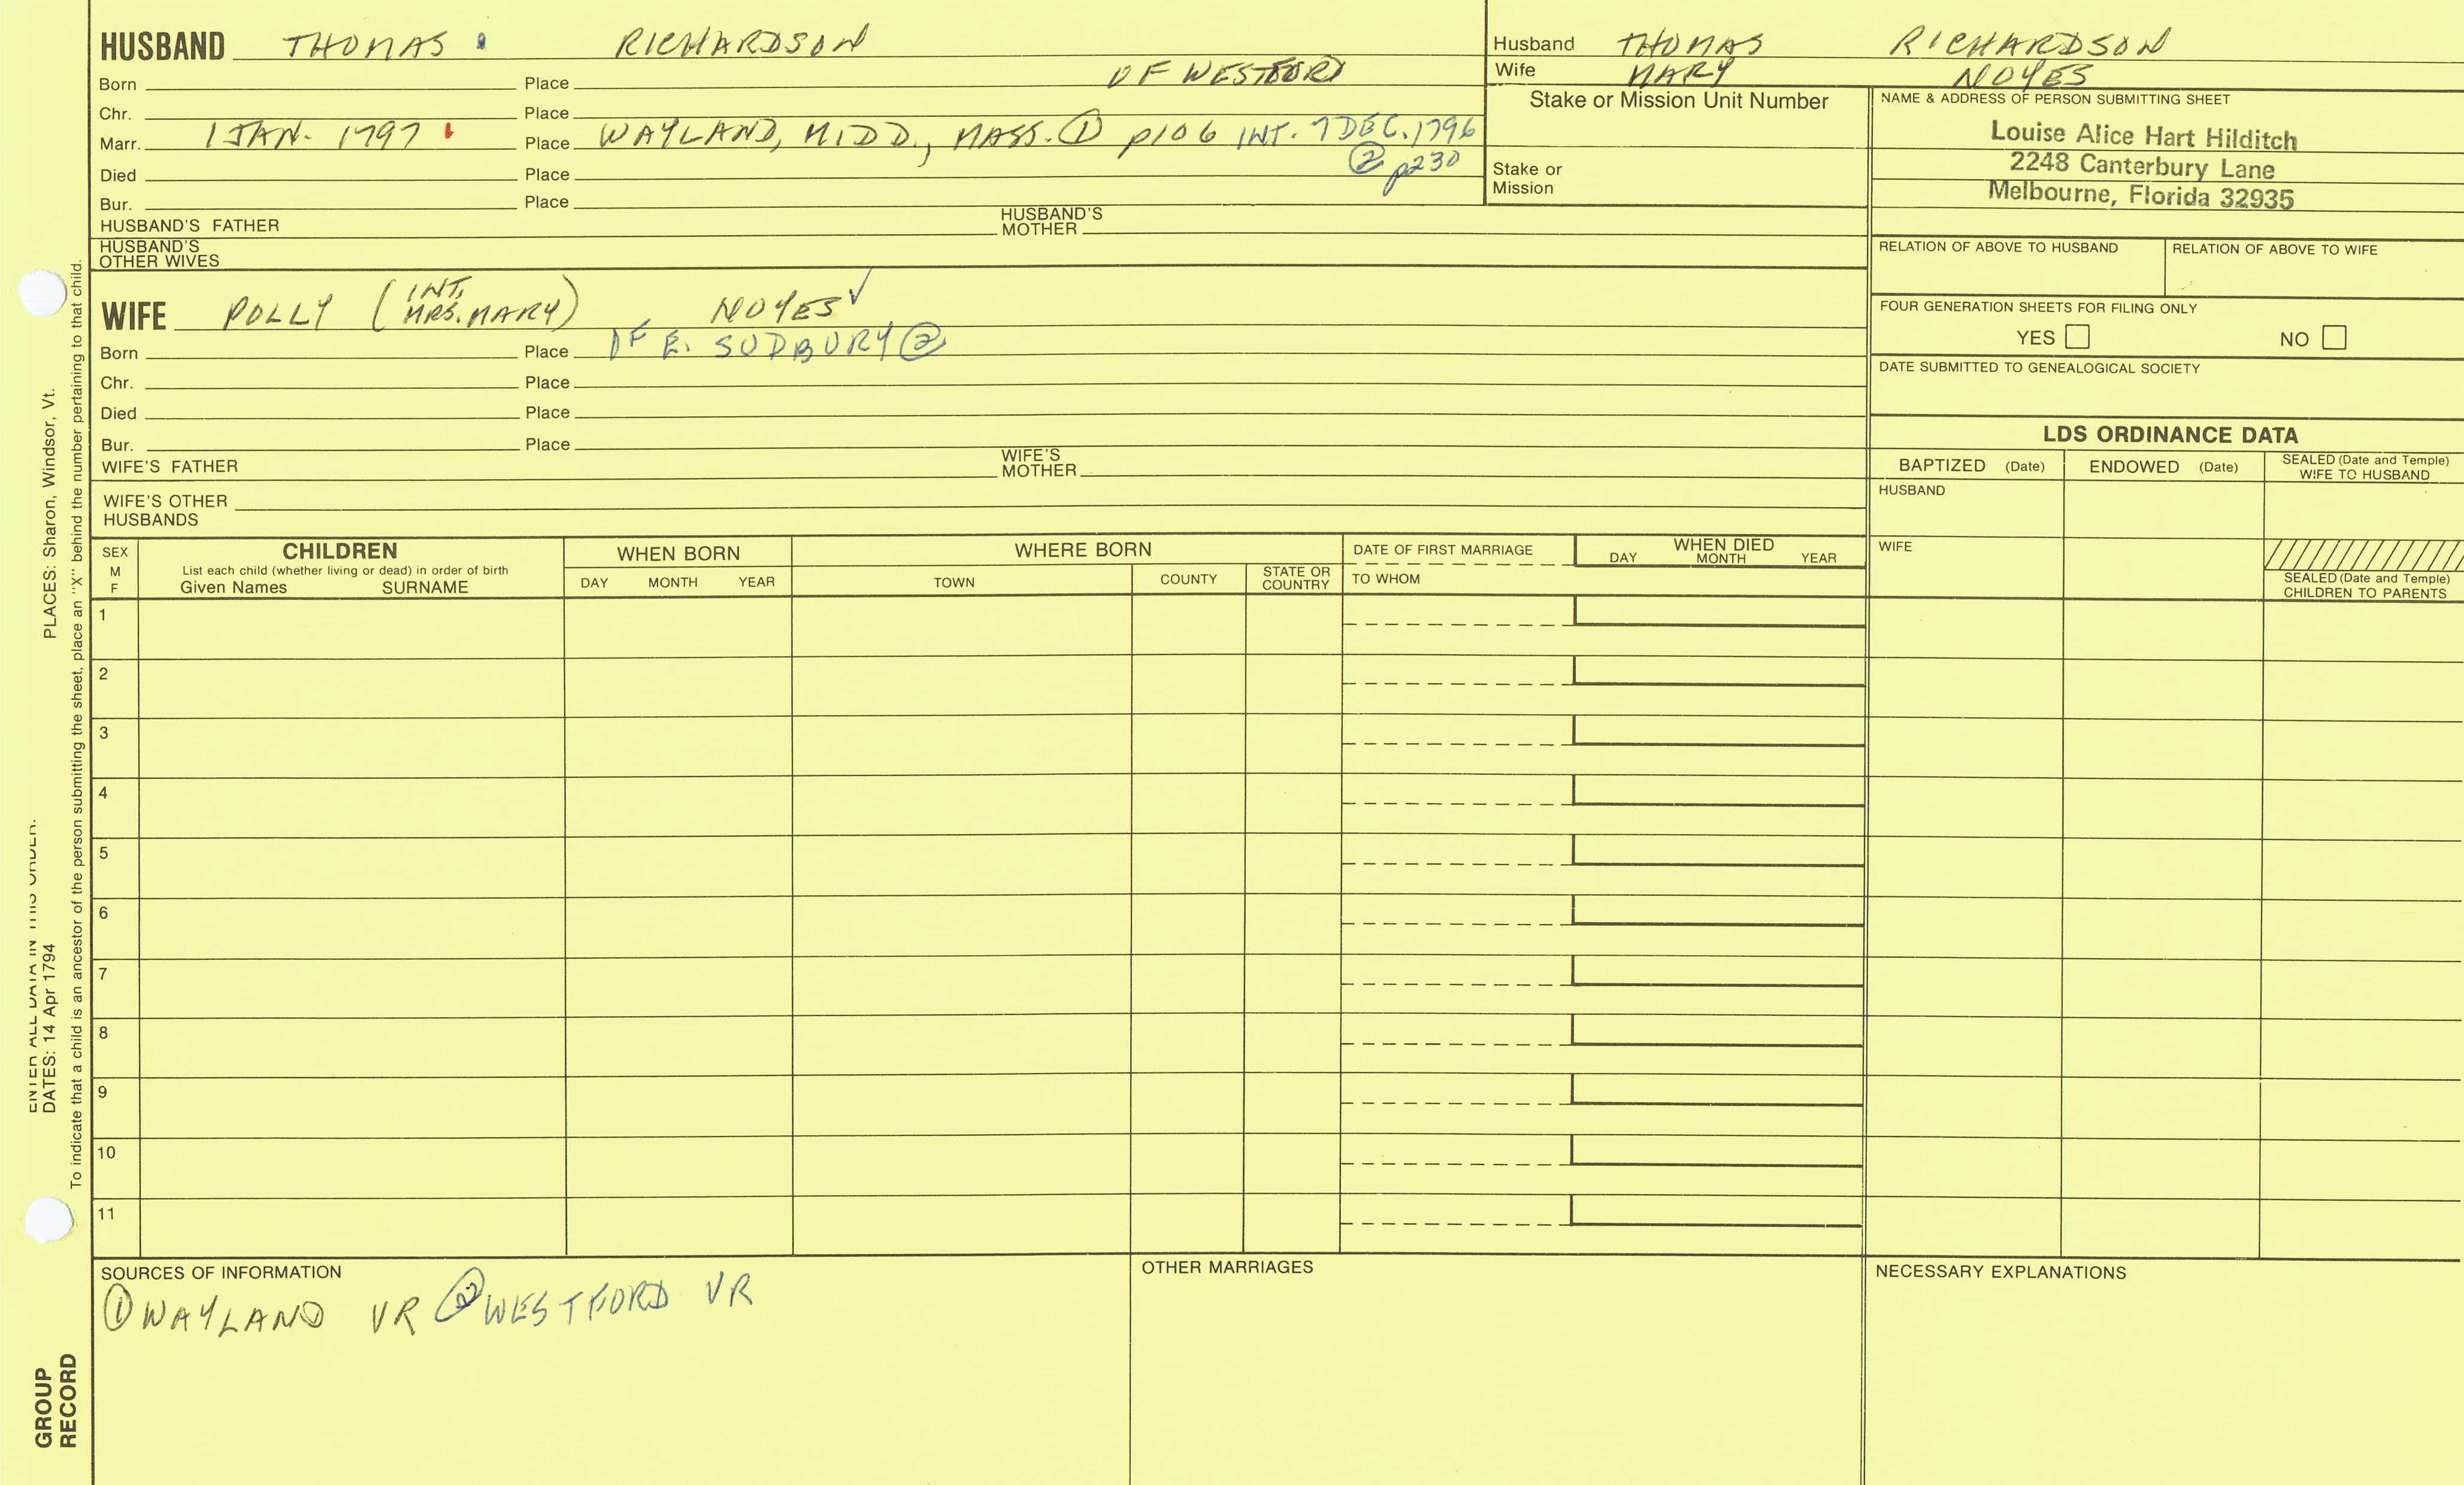 HUSBAND THOMAS RICHARDSON
Born Place OF WESTFORD
Chr. Place
Marr. 1 JAN. 1797 Place WAYLAND, MIDD., MASS. ① p106 INT. 7 DEC. 1796
② p230
Died Place
Bur. Place
HUSBAND'S FATHER HUSBAND'S MOTHER
HUSBAND'S OTHER WIVES
Husband THOMAS RICHARDSON
Wife MARY NOYES
Stake or Mission Unit Number
Stake or
Mission
NAME & ADDRESS OF PERSON SUBMITTING SHEET
Louise Alice Hart Hilditch
2248 Canterbury Lane
Melbourne, Florida 32935
RELATION OF ABOVE TO HUSBAND RELATION OF ABOVE TO WIFE
FOUR GENERATION SHEETS FOR FILING ONLY
YES NO
DATE SUBMITTED TO GENEALOGICAL SOCIETY
WIFE POLLY (INT. MRS. MARY) NOYES ✓
Born Place OF E. SUDBURY ②
Chr. Place
Died Place
Bur. Place
WIFE'S FATHER WIFE'S MOTHER
WIFE'S OTHER
HUSBANDS
LDS ORDINANCE DATA
BAPTIZED (Date) ENDOWED (Date) SEALED (Date and Temple) WIFE TO HUSBAND
HUSBAND
WIFE
SEALED (Date and Temple)
CHILDREN TO PARENTS
SEX
M
F
CHILDREN
List each child (whether living or dead) in order of birth
Given Names SURNAME
WHEN BORN
DAY MONTH YEAR
WHERE BORN
TOWN COUNTY STATE OR COUNTRY
DATE OF FIRST MARRIAGE
TO WHOM
WHEN DIED
DAY MONTH YEAR
1
2
3
4
5
6
7
8
9
10
11
SOURCES OF INFORMATION
① WAYLAND VR ② WESTFORD VR
OTHER MARRIAGES
NECESSARY EXPLANATIONS
ENTER ALL DATA IN THIS ORDER:
DATES: 14 Apr 1794 PLACES: Sharon, Windsor, Vt.
To indicate that a child is an ancestor of the person submitting the sheet, place an "X" behind the number pertaining to that child.
GROUP
RECORD